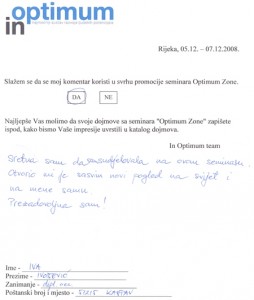 in optimum
Rijeka, 05.12. – 07.12.2008.
Slažem se da se moj komentar koristi u svrhu promocije seminara Optimum Zone.
DA NE
Najljepše Vas molimo da svoje dojmove sa seminara "Optimum Zone" zapišete
ispod, kako bismo Vaše impresije uvrstili u katalog dojmova.
In Optimum team
Sretna sam da sam sudjelovala na ovom seminaru.
Otvorio mi je sasvim novi pogled na svijet i
na mene samu.
Prezadovoljna sam!
Ime - IVA
Prezime -
Zanimanje -
Poštanski broj i mjesto - 51215 KASTAV